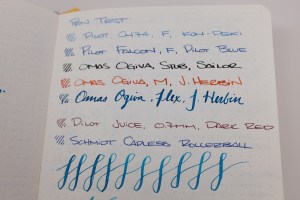 PEN TEST:
PILOT CH74, F, KON-PEKI
PILOT FALCON, F, PILOT BLUE
OMAS OGIVA, STUB, SAILOR
OMAS OGIVA, M, J. HERBIN
Omas Ogiva, flex, J. Herbin
PILOT JUICE, 0.7MM, DARK RED
SCHMIDT CAPLESS ROLLERBALL